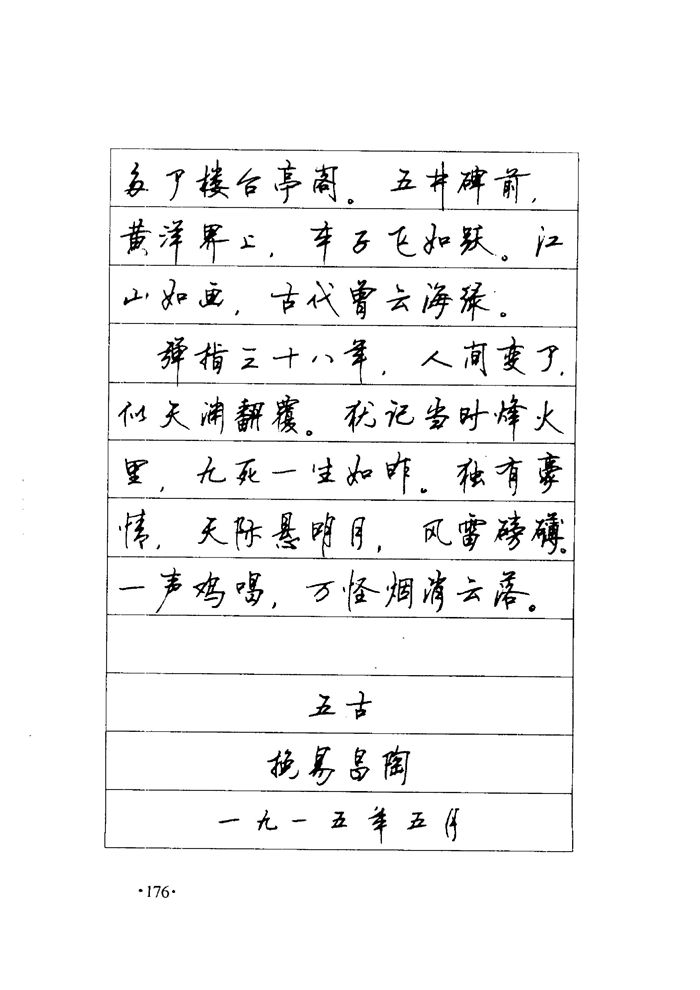 多了楼台亭阁。五井碑前，
黄洋界上，车子飞如跃。江
山如画，古代曾云海绿。
弹指三十八年，人间变了，
似天渊翻覆。犹记当时烽火
里，九死一生如昨。独有豪
情，天际悬明月，风雷磅礴。
一声鸡唱，万怪烟消云落。
五古
挽易昌陶
一九一五年五月
·176·